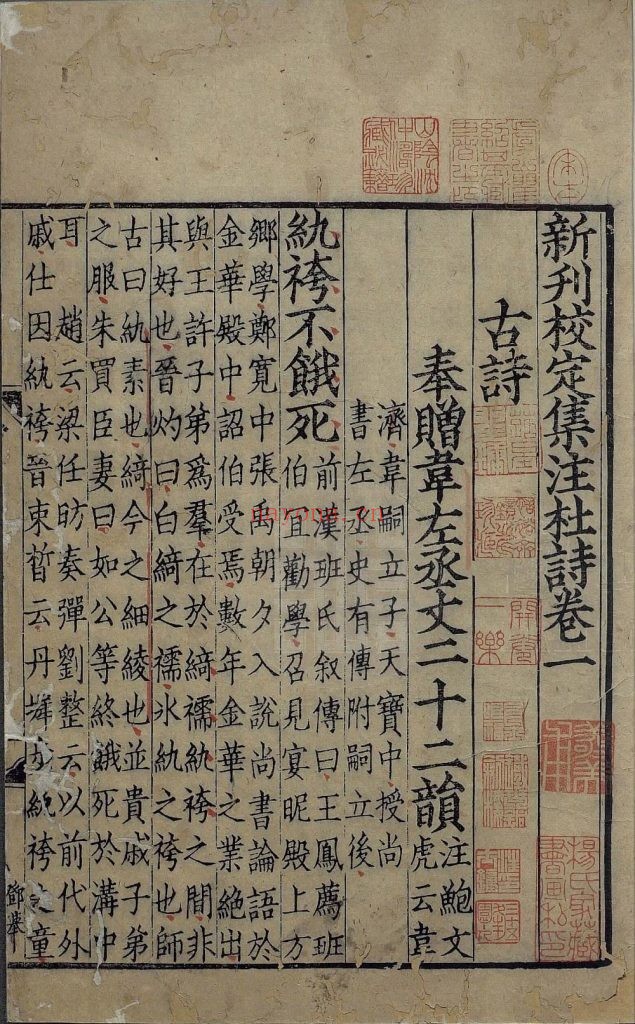 新刊校定集注杜詩卷一
古詩
奉贈韋左丞丈二十二韻
注鮑文
虎云韋
濟韋嗣立子天寶中授尚
書左丞史有傳附嗣立後
紈袴不餓死
前漢班氏叙傳曰王鳳薦班
伯宜勸學召見宴昵殿上方
鄉學鄭寬中張禹朝夕入說尚書論語於
金華殿中詔伯受焉數年金華之業絕出
與王許子弟爲羣在於綺襦紈袴之間非
其好也晉灼曰白綺之襦冰紈之袴也師
古曰紈素也綺今之細綾也並貴戚子弟
之服朱買臣妻曰如公等終餓死於溝中
耳 趙云梁任昉奏彈劉整云以前代外
戚仕因紈袴晉束晳云丹墀步紈袴之童
鄧舉